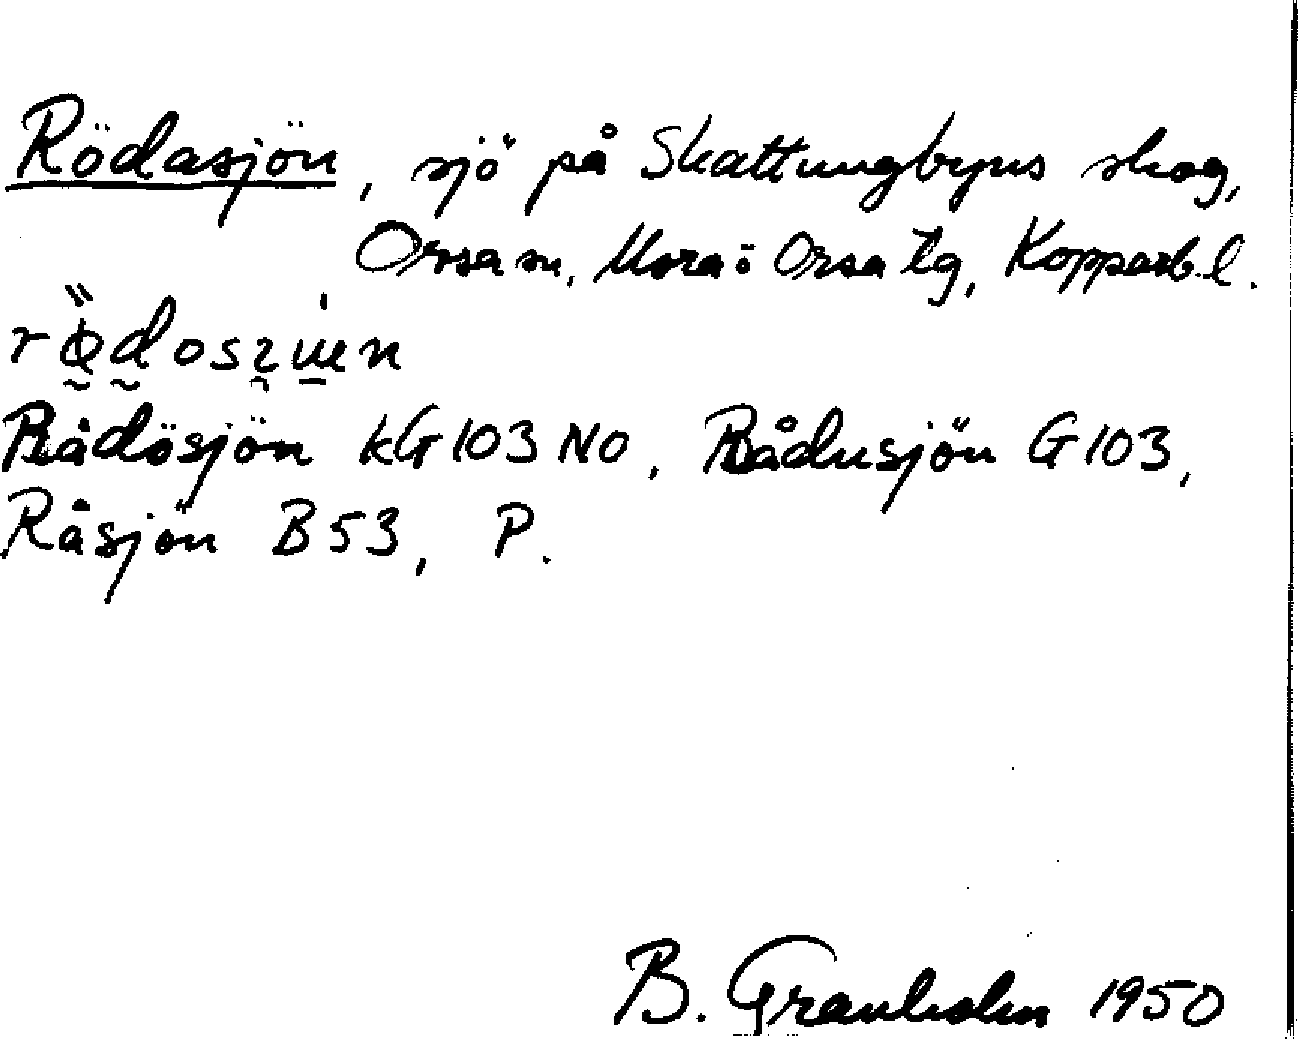 Rödasjön, sjö på Skattungbyns skog,
Orsa sn, Mora ö Orsa tg, Kopparb. l.
Rådösjön kG103 NO, Rådusjön G103,
Råsjön B53, P.
B. Granholm 1950